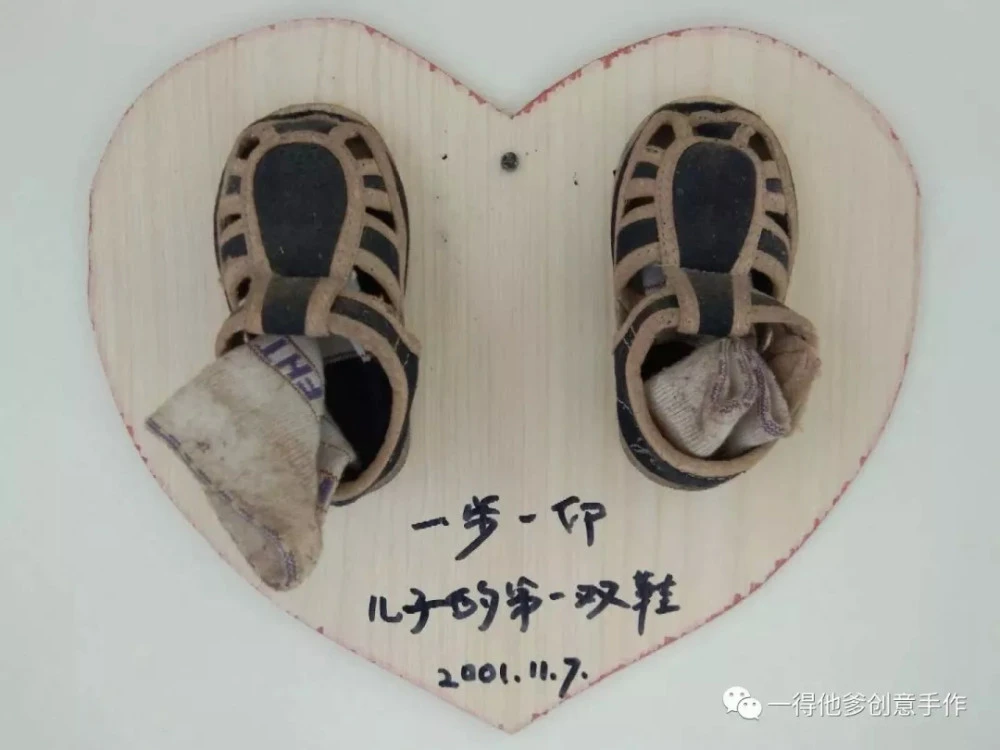 FHT
一步一印
儿子的第一双鞋
2001.11.7.
一得他爹创意手作